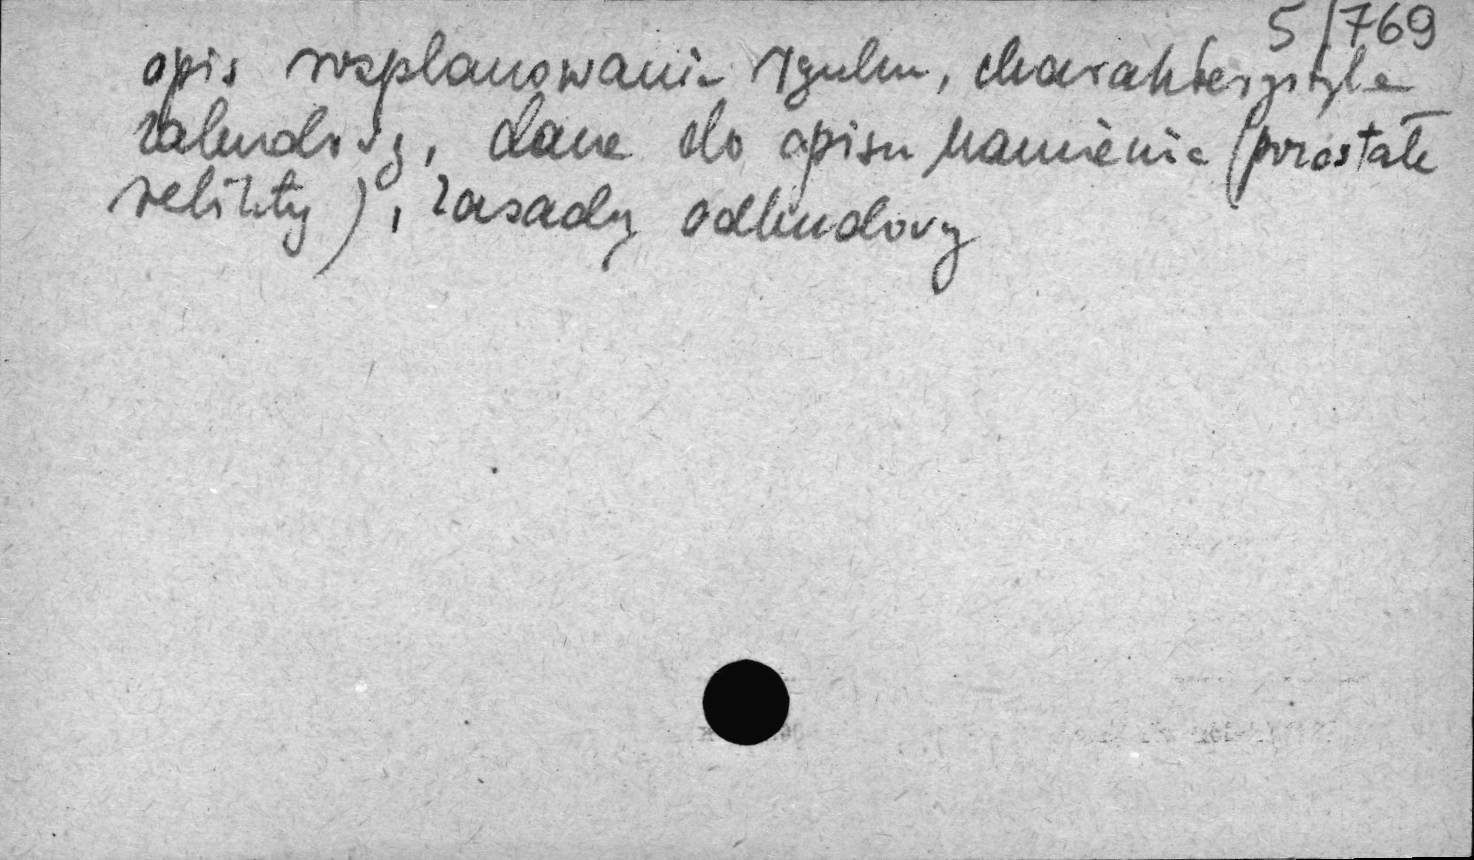 5/769
opis rozplanowania rynku, charakterystyka
zabudowy, dane do opisu kamienic (pozostałe
relikty), zasady odbudowy